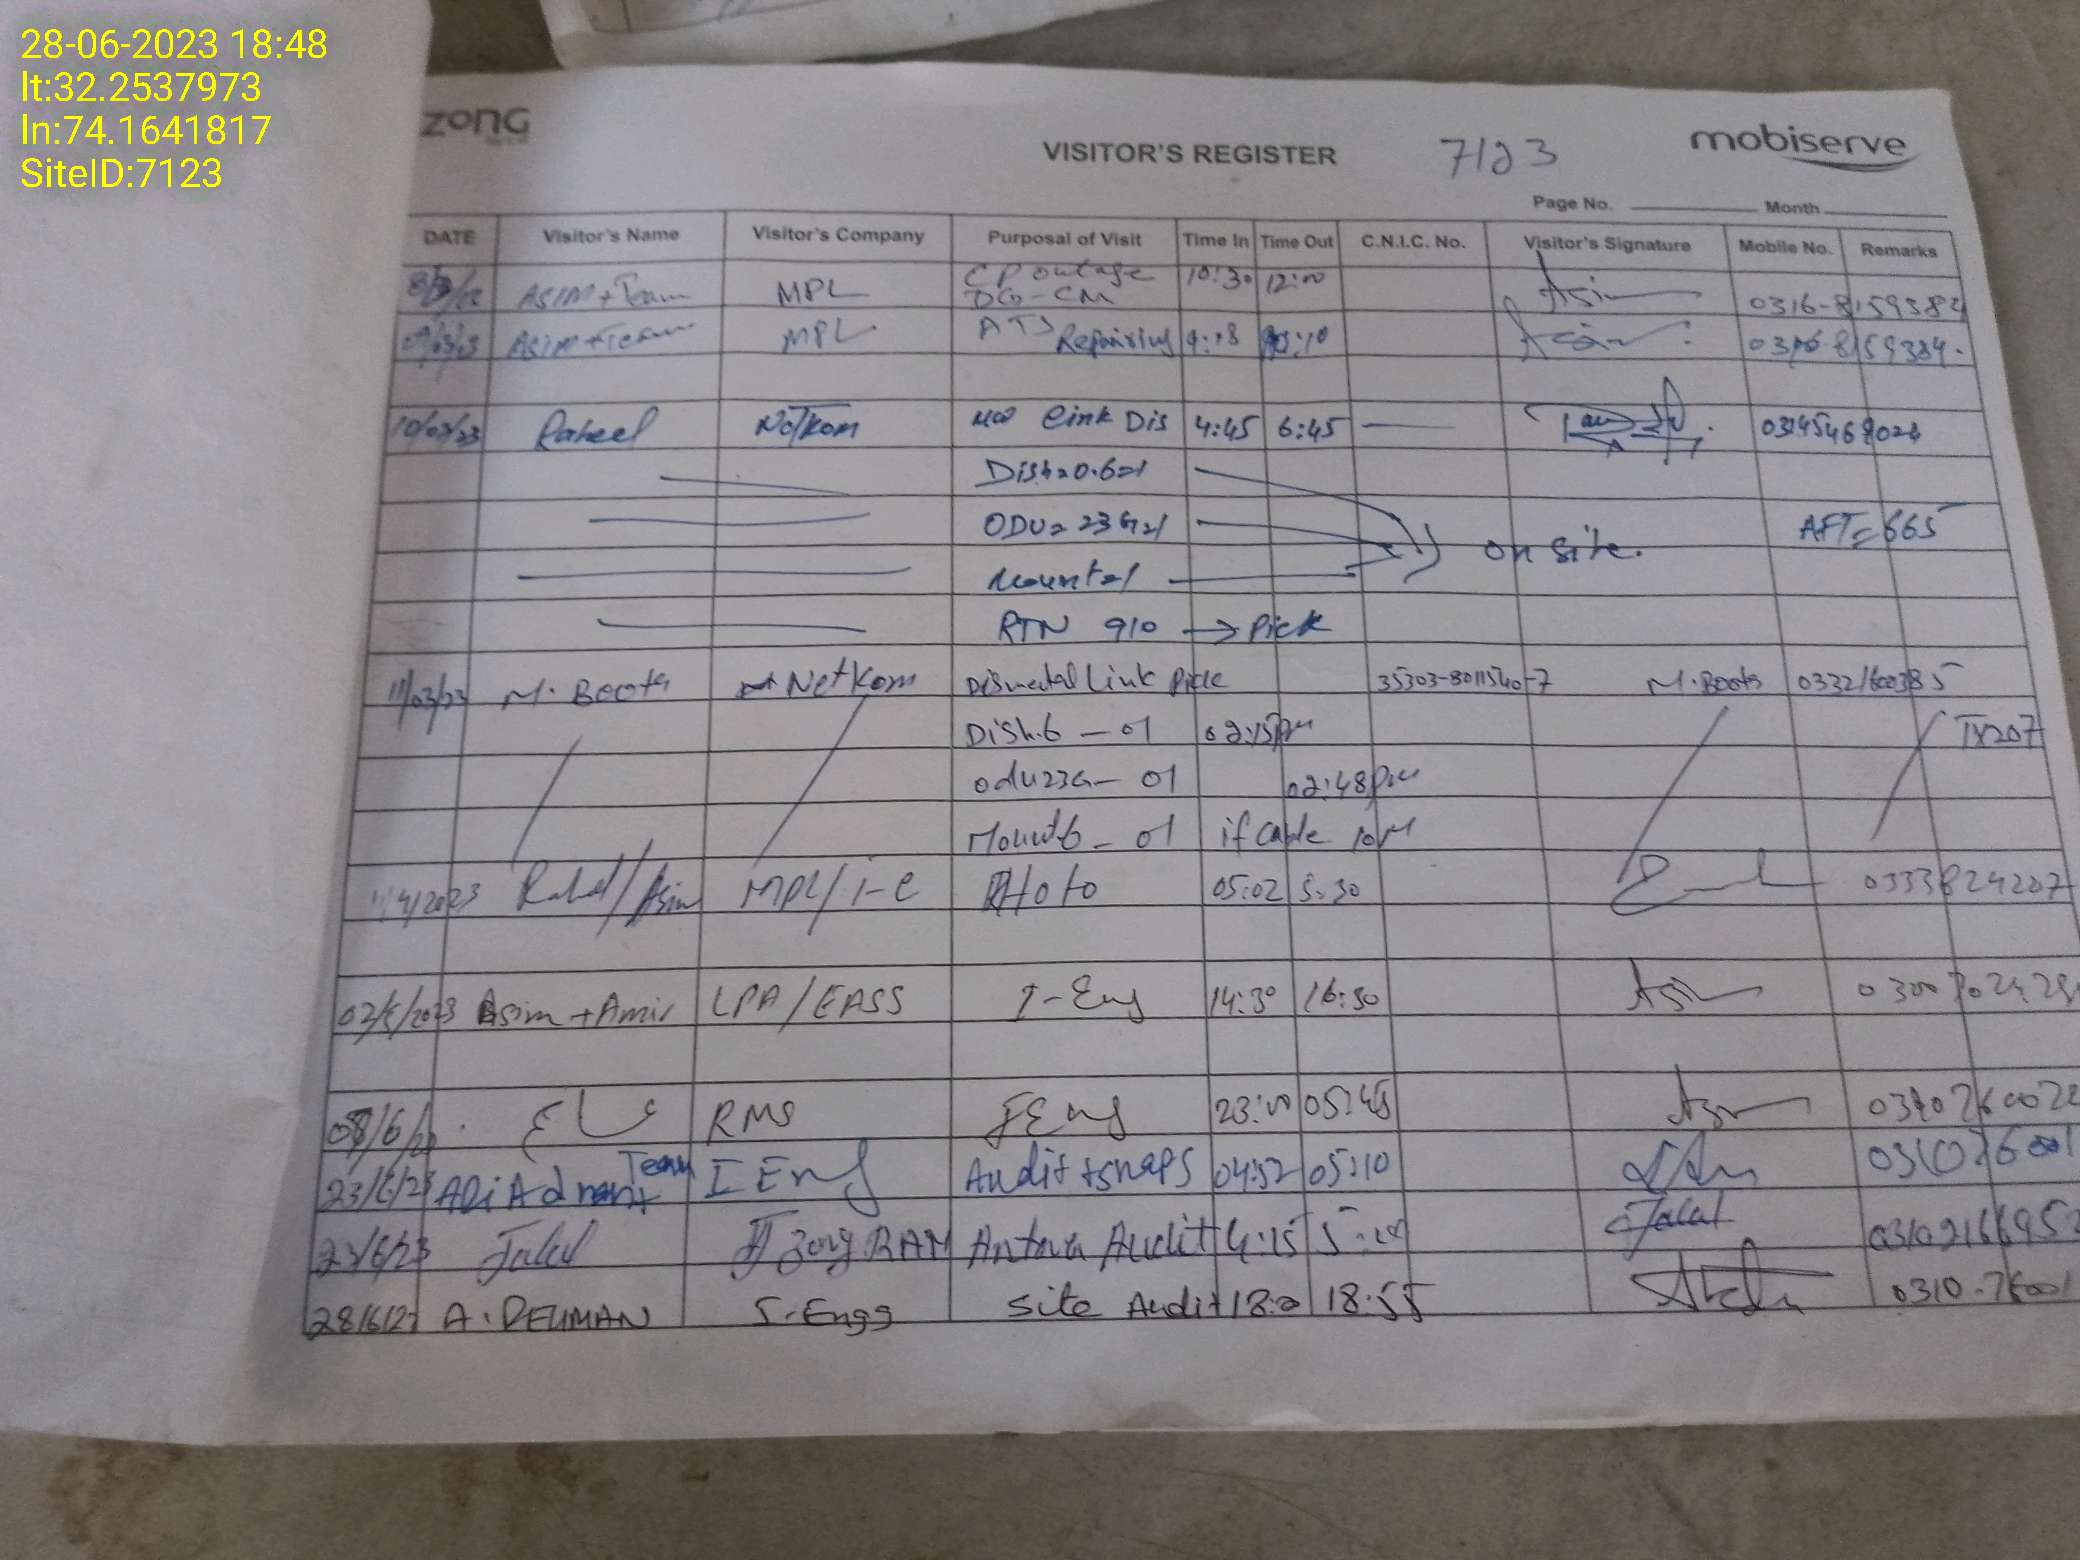 28-06-2023 18:48
lt:32.2537973
ln:74.1641817
SiteID:7123
zong
VISITOR'S REGISTER 7123 mobiserve
Page No. Month
DATE Visitor's Name Visitor's Company Purposal of Visit Time In Time Out C.N.I.C. No. Visitor's Signature Mobile No. Remarks
ASIM + Team MPL CP outage 10:30 12:00 Asim
DG-CM 0316-8159384
Asim + Team MPL ATS Repairing Asim
10/03/23 Raheel Netkom MW Link Dis 4:45 6:45
Dish=0.6=1
ODU=23G=1 on site. AFT=665
Mount=1
RTN 910 → Pick
11/03/23 M. Boota Netkom Dismental Link Pick 35303-8011540-7 M. Boota 03321600385
Dish.6 - 01 02:15pm TX207
odu23G - 01 02:48pm
Mount6 - 01 if Cable 10M
Rahel/Asim MPL/I-E Photo 05:02 5:30 0333824207
02/5/2023 Asim + Amir LPA/EASS I-Eng 14:30 16:30 Asim
08/6/23 RMS I Eng 23:00 05:45
23/6/23 ADi Adnan Team I Eng Audit + snaps 04:52 05:10
23/6/23 Jalal Zong RAN Antena Audit 4:15 Jalal
28/6/23 A. REHMAN I-Engg Site Audit 18:55